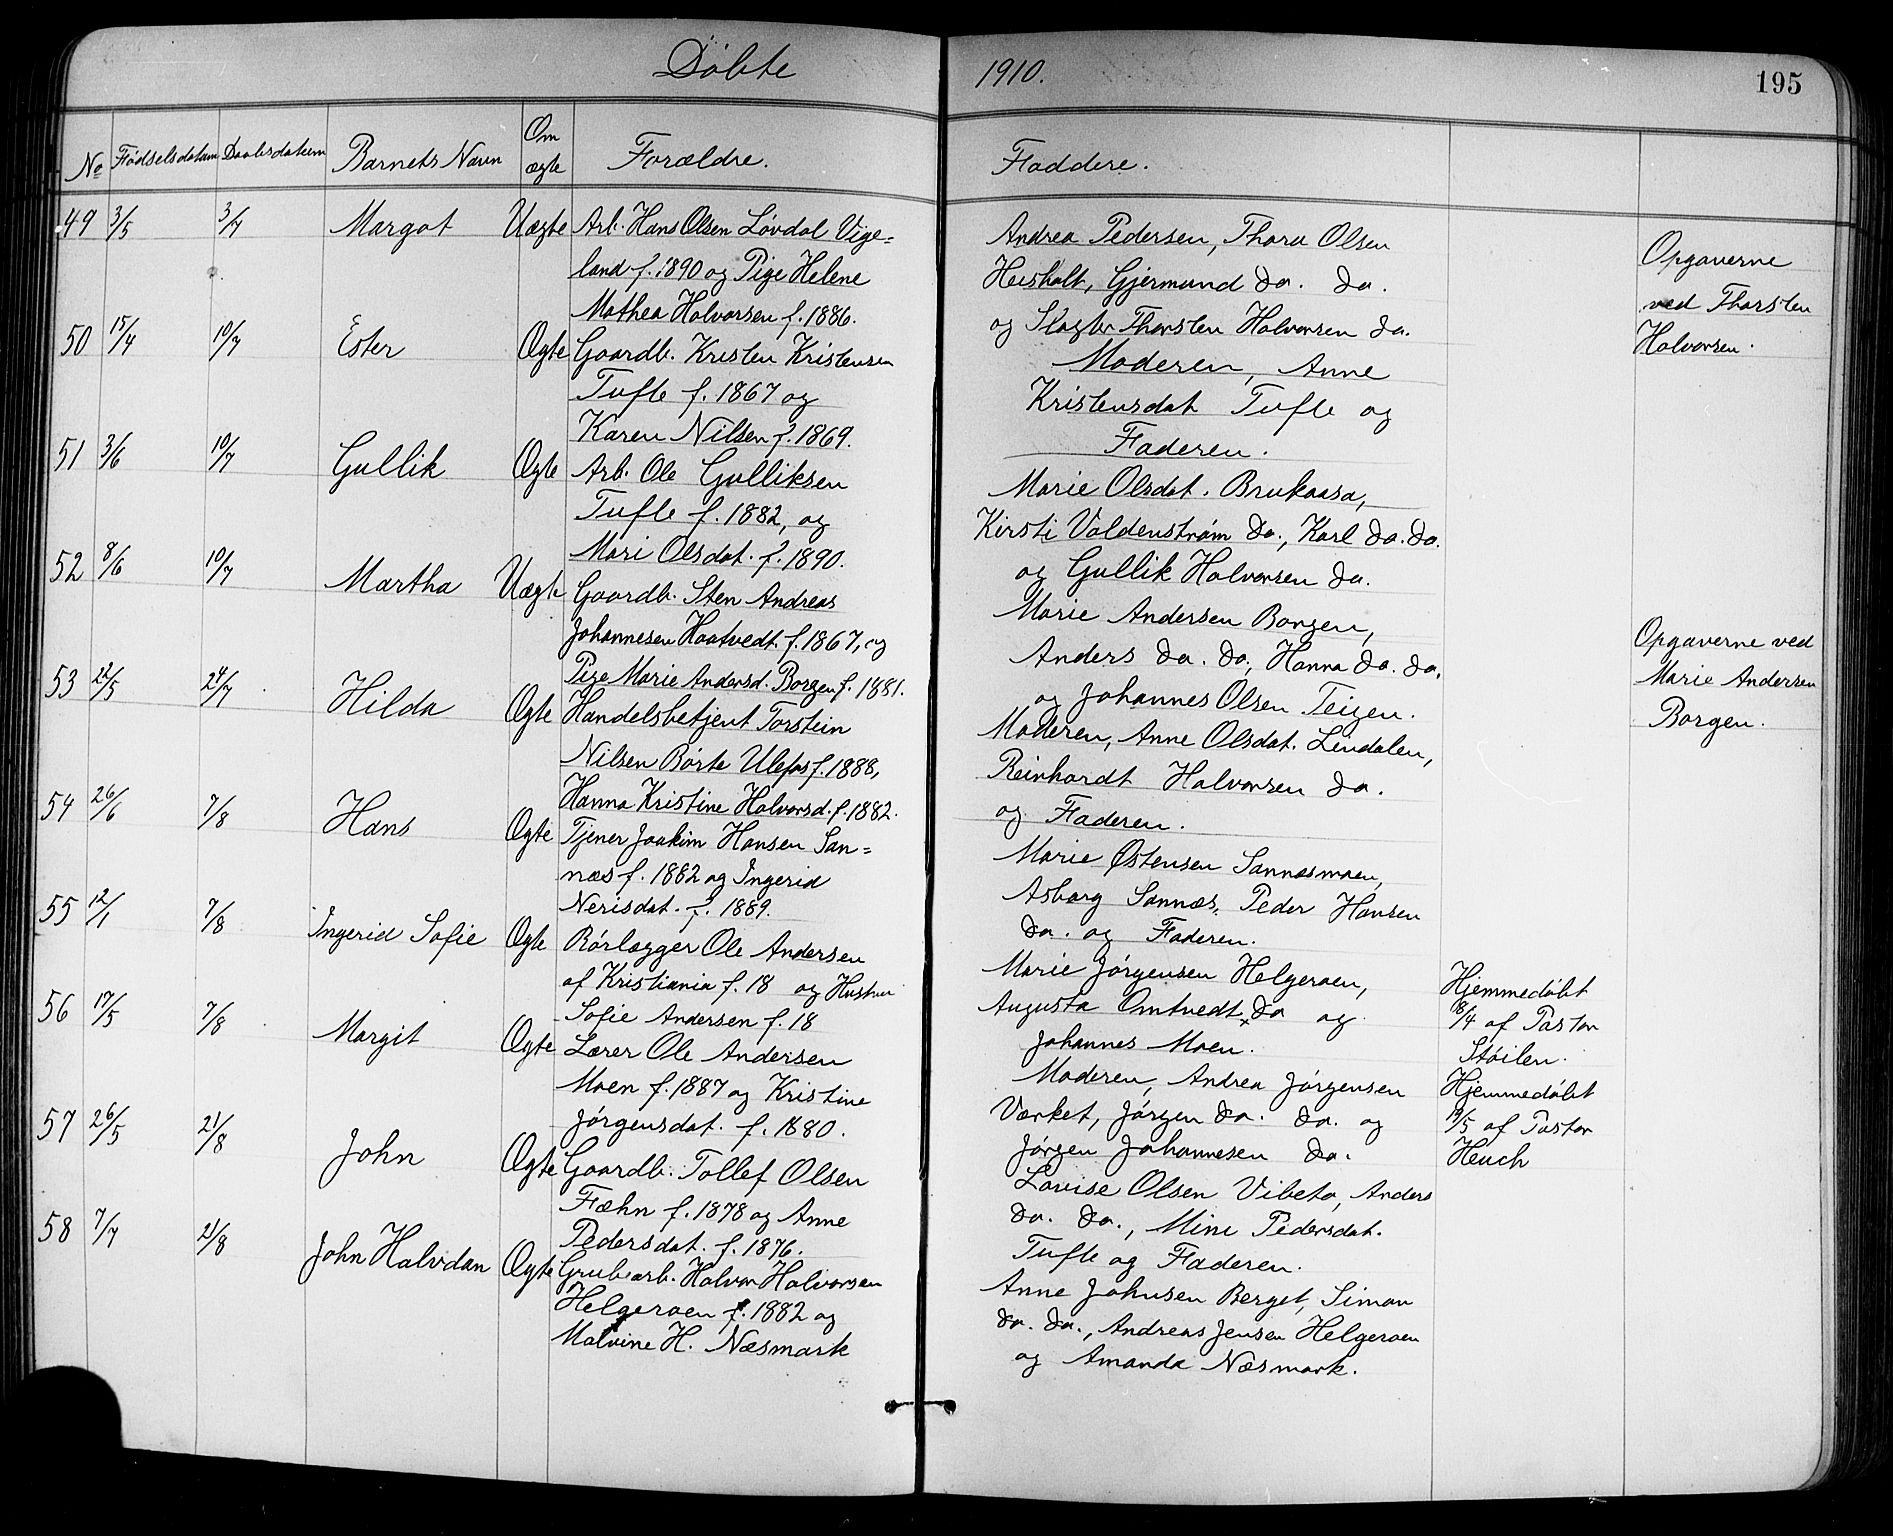 Döbte 1910. 195
No Fødselsdatum Daabsdatum Barnets Navn Om ægte Forældre. Faddere.
49 3/5 3/7 Margot Uægte Arb. Hans Olsen Løvdal Vige=
land f. 1890 og Pige Helene
Mathea Halvorsen f. 1886.
Andrea Pedersen, Thora Olsen
Heisholt, Gjermund do. do.
og Slagter Thorsten Halvorsen do.
Opgaverne
ved Thorsten
Halvorsen.
50 15/4 10/7 Ester Ægte Gaardb. Kristen Kristensen
Tufte f. 1867 og
Karen Nilsen f. 1869.
Moderen, Anne
Kristensdat Tufte og
Faderen.
51 3/6 10/7 Gullik Ægte Arb. Ole Gulliksen
Tufte f. 1882, og
Mari Olsdat. f. 1890.
Marie Olsdat. Brukaasa,
Kirsti Valdenstrøm do., Karl do. do.
og Gullik Halvorsen do.
52 8/6 10/7 Martha Uægte Gaardb. Sten Andreas
Johannesen Haatvedt f. 1867, og
Pige Marie Andersd. Borgen f. 1881.
Marie Andersen Borgen,
Anders do. do., Hanna do. do.
og Johannes Olsen Teigen.
Opgaverne ved
Marie Andersen
Borgen.
53 22/5 24/7 Hilda Ægte Handelsbetjent Torstein
Nilsen Børte Ulefos f. 1888,
Hanna Kristine Halvorsd. f. 1882.
Moderen, Anne Olsdat. Lendalen,
Reinhardt Halvorsen do.
og Faderen.
54 26/6 7/8 Hans Ægte Tjener Joakim Hansen San=
næs f. 1882 og Ingerid
Nerisdat. f. 1889.
Marie Østensen Sannæsmoen,
Asborg Sannæs, Peder Hansen
do. og Faderen.
55 12/1 7/8 Ingerid Sofie Ægte Rørlægger Ole Andersen
af Kristiania f. 18 og Hustru
Sofie Andersen f. 18
Marie Jørgensen Helgeroen,
Augusta Omtvedt do og
Johannes Moen.
Hjemmedøbt
18/4 af Pastor
Støilen.
56 17/5 7/8 Margit Ægte Lærer Ole Andersen
Moen f. 1887 og Kristine
Jørgensdat. f. 1880.
Moderen, Andrea Jørgensen
Værket, Jørgen do. do. og
Jørgen Johannesen do.
Hjemmedøbt
19/5 af Pastor
Heuch
57 26/5 21/8 John Ægte Gaardb. Tollef Olsen
Fæhn f. 1878 og Anne
Pedersdat. f. 1876.
Lovise Olsen Vibeto, Anders
do. do., Mine Pedersdat.
Tufte og Faderen.
58 7/7 21/8 John Halvdan Ægte Grubearb. Halvor Halvorsen
Helgeroen f. 1882 og
Malvine H. Næsmark
Anne Johnsen Berget, Simon
do. do., Andreas Jensen Helgeroen
og Amanda Næsmark.